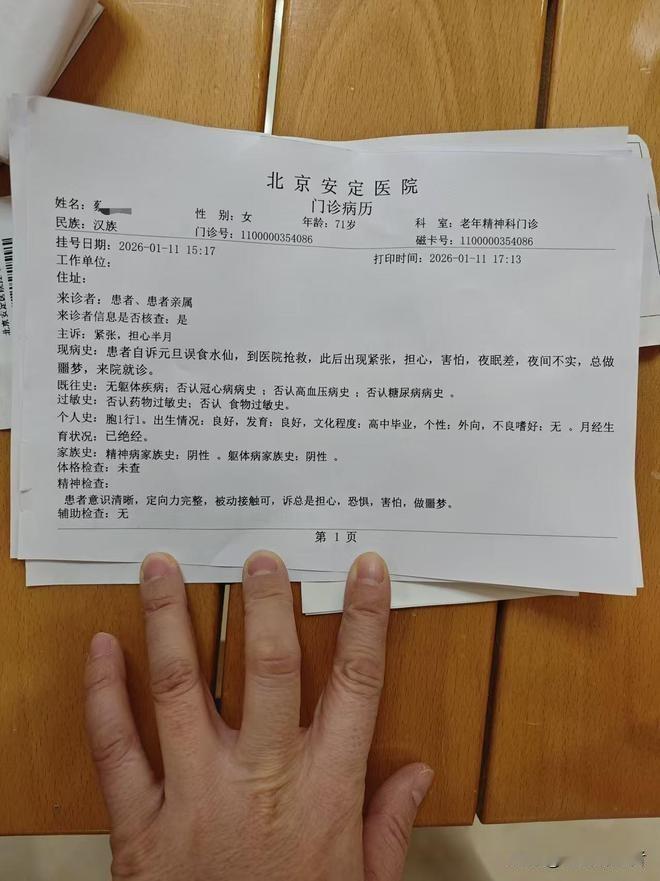 北京安定医院
门诊病历
姓名：蔡
性 别：女
年龄：71岁
科 室：老年精神科门诊
民族：汉族
门诊号：1100000354086
磁卡号：1100000354086
挂号日期：2026-01-11 15:17
打印时间：2026-01-11 17:13
工作单位：
住址：
来诊者：患者、患者亲属
来诊者信息是否核查：是
主诉：紧张，担心半月
现病史：患者自诉元旦误食水仙，到医院抢救，此后出现紧张，担心，害怕，夜眠差，夜间不实，总做
噩梦，来院就诊。
既往史：无躯体疾病；否认冠心病病史 ；否认高血压病史 ；否认糖尿病病史 。
过敏史：否认药物过敏史；否认 食物过敏史。
个人史：胞1行1。出生情况：良好，发育：良好，文化程度：高中毕业，个性：外向，不良嗜好：无 。月经生
育状况：已绝经。
家族史：精神病家族史：阴性 。躯体病家族史：阴性 。
体格检查：未查
精神检查：
患者意识清晰，定向力完整，被动接触可，诉总是担心，恐惧，害怕，做噩梦。
辅助检查：无
第 1 页